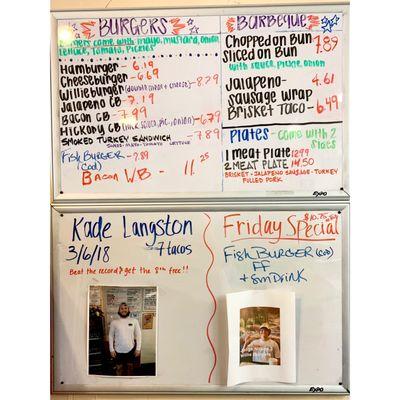 BURGERS
Burgers come with mayo, mustard, onion
lettuce, tomato, pickles
Hamburger- 6.19
Cheeseburger- 6.69
Willieburger (double meat + cheese) - 8.29
Jalapeno CB- 7.19
Bacon CB - 7.99
Hickory CB (hick sauce, pic, onion) - 6.79
Smoked Turkey Sandwich - 7.89
Fish Burger - 7.89
(Cod)
Bacon WB - 11.25
BARBEQUE
Chopped on Bun 7.89
Sliced on Bun
with sauce, pickle, onion
Jalapeno- 4.61
Sausage wrap
Brisket Taco - 6.49
Plates - come with 2
sides
1 meat Plate 12.99
2 MEAT PLATE 14.50
BRISKET - JALAPENO SAUSAGE - TURKEY
PULLED PORK
EXPO
Kade Langston
3/6/18 7 tacos
Beat the record & get the 8th free!!
Friday Special
Fish BURGER (Cod)
FF
+ Sm DRINK
EXPO